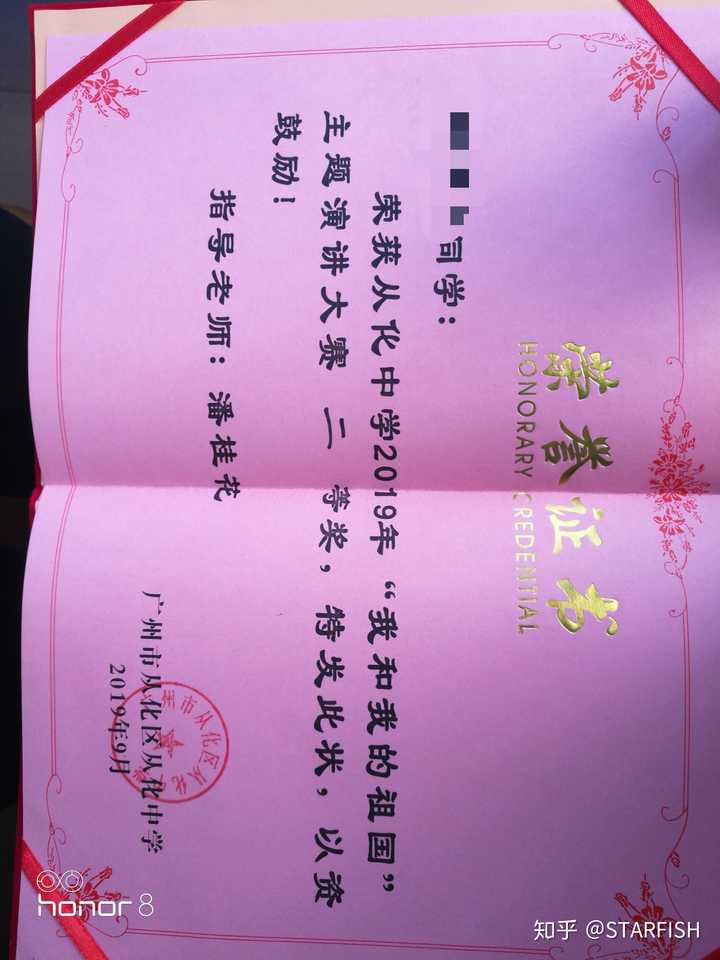 荣誉证书
HONORARY CREDENTIAL
同学：
荣获从化中学2019年“我和我的祖国”
主题演讲大赛 二 等奖，特发此状，以资
鼓励！
指导老师：潘桂花
广州市从化区从化中学
2019年9月
honor 8
知乎 @STARFISH